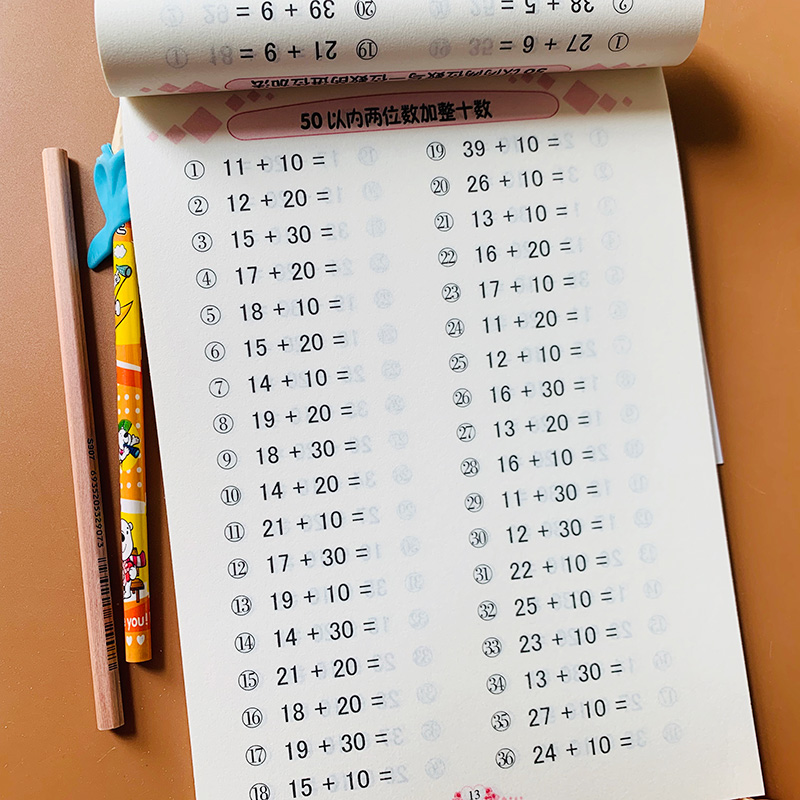 ⑳ 39 + 9 =
② 38 + 5 =
⑲ 21 + 9 =
① 27 + 6 =
50以内两位数与一位数的进位加法
50以内两位数加整十数
① 11 + 10 =
② 12 + 20 =
③ 15 + 30 =
④ 17 + 20 =
⑤ 18 + 10 =
⑥ 15 + 20 =
⑦ 14 + 10 =
⑧ 19 + 20 =
⑨ 18 + 30 =
⑩ 14 + 20 =
⑪ 21 + 10 =
⑫ 17 + 30 =
⑬ 19 + 10 =
⑭ 14 + 30 =
⑮ 21 + 20 =
⑯ 18 + 20 =
⑰ 19 + 30 =
⑱ 15 + 10 =
⑲ 39 + 10 =
⑳ 26 + 10 =
㉑ 13 + 10 =
㉒ 16 + 20 =
㉓ 17 + 10 =
㉔ 11 + 20 =
㉕ 12 + 10 =
㉖ 16 + 30 =
㉗ 13 + 20 =
㉘ 16 + 10 =
㉙ 11 + 30 =
㉚ 12 + 30 =
㉛ 22 + 10 =
㉜ 25 + 10 =
㉝ 23 + 10 =
㉞ 13 + 30 =
㉟ 27 + 10 =
㊱ 24 + 10 =
13
5907 6935205329073
you!